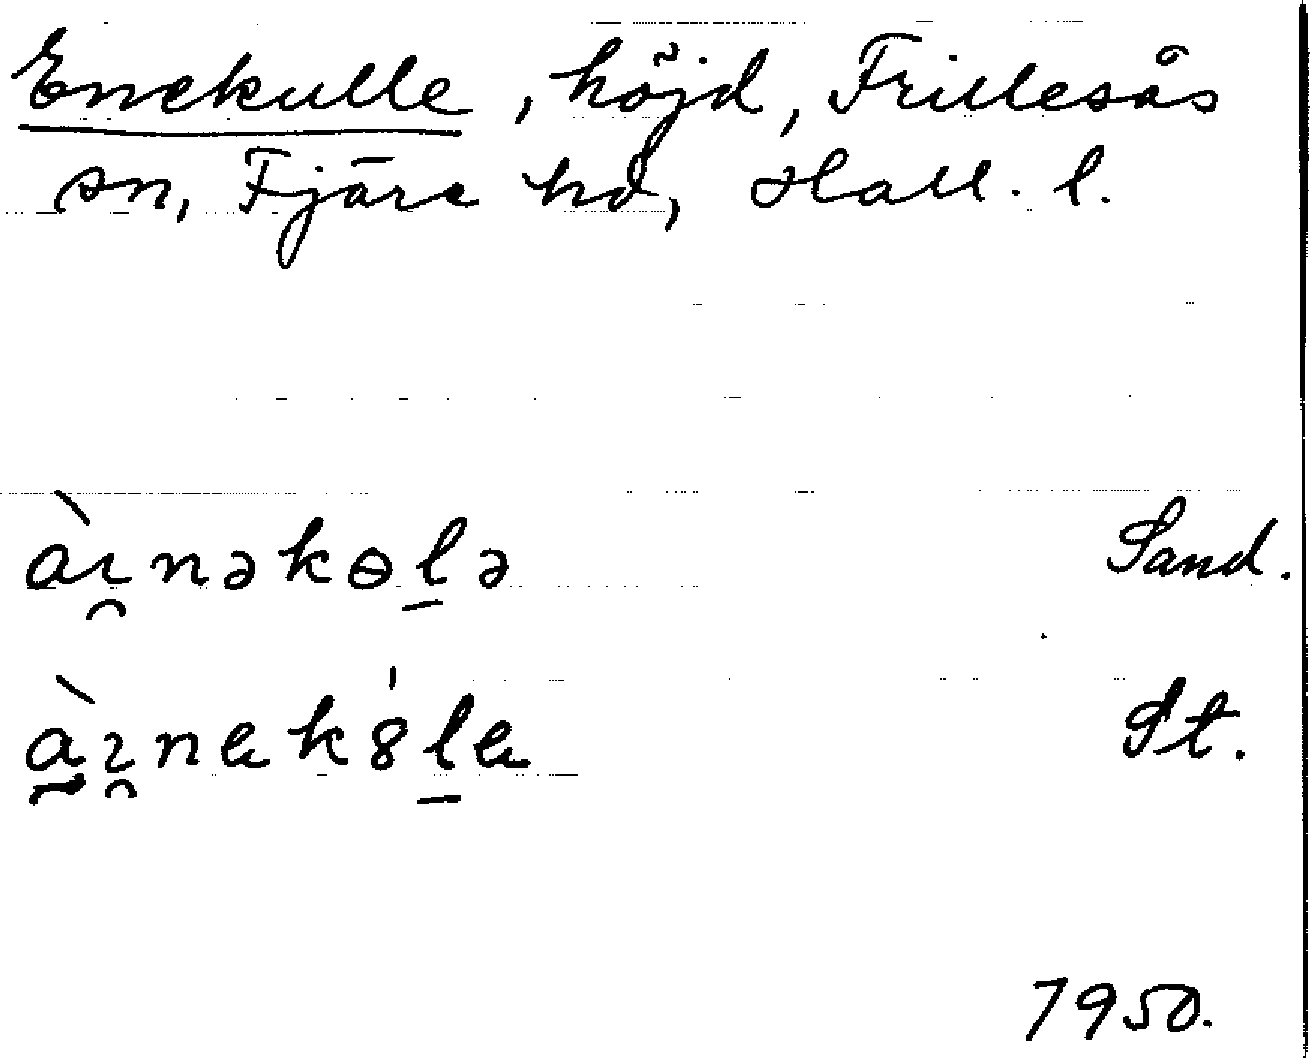 Enekulle, höjd, Frillesås
sn, Fjäre hd, Hall. l.
àı̯nəkɵl̠ə Sand.
à̰ɿ̯nek8́l̠e St.
1950.